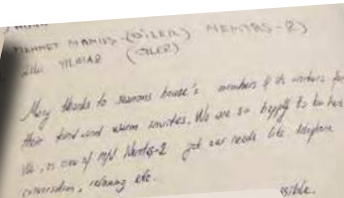 MEHMET MANUS-(OİLER) NEMTAS-2)
YILMAZ (OILER)
Many thanks to seamons house's members & its workers for
their kind and warm invites. We are so happy to be here
We, as crew of M/V Nemtas-2 got our needs like telephone
conversation, relaxing etc.
ssible.